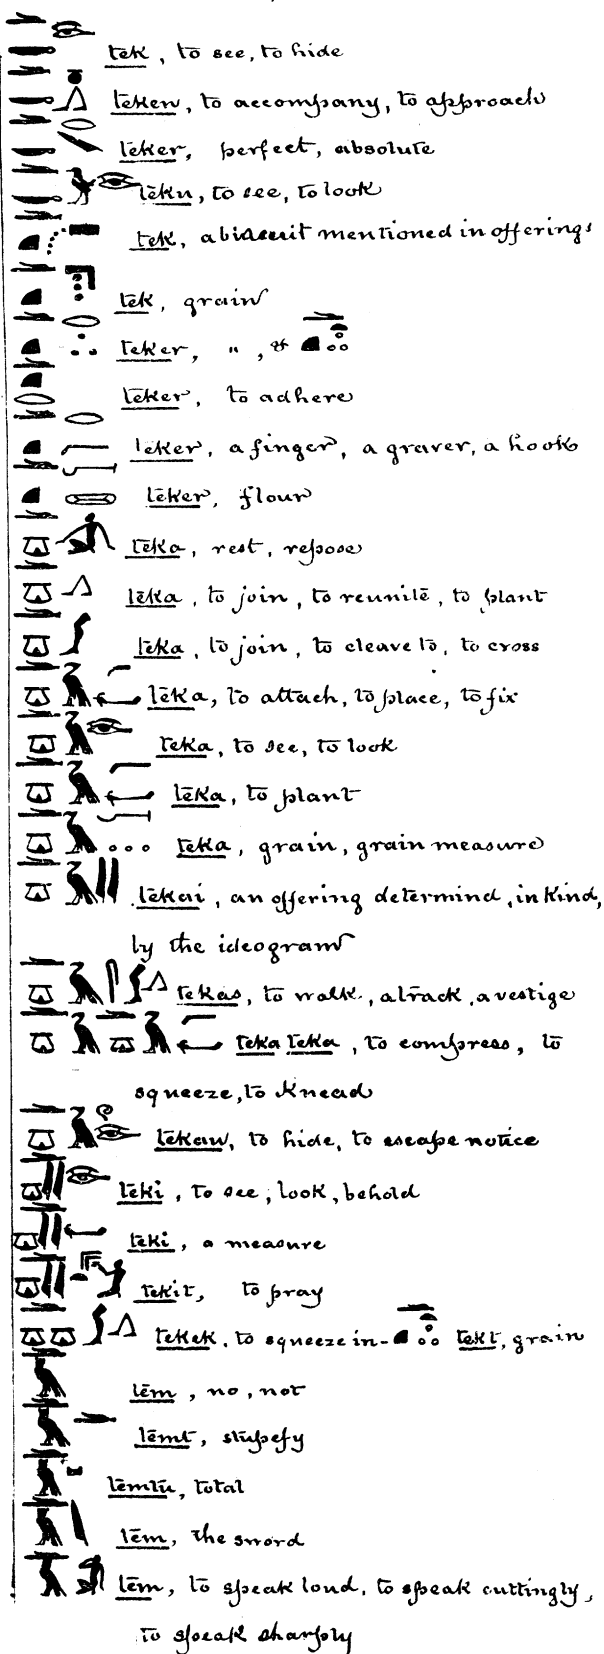 tek, to see, to hide
teken, to accompany, to approach
teker, perfect, absolute
teku, to see, to look
tek, a biscuit mentioned in offerings
tek, grain
teker, " , &
teker, to adhere
teker, a finger, a graver, a hook
teker, flour
teka, rest, repose
teka, to join, to reunite, to plant
teka, to join, to cleave to, to cross
teka, to attach, to place, to fix
teka, to see, to look
teka, to plant
teka, grain, grain measure
tekai, an offering determind, in kind,
by the ideogram
tekas, to walk, a track, a vestige
teka teka, to compress, to
squeeze, to knead
tekau, to hide, to escape notice
teki, to see, look, behold
teki, a measure
tekit, to pray
tekek, to squeeze in - tekt, grain
tem, no, not
temt, stupefy
temtu, total
tem, the sword
tem, to speak loud, to speak cuttingly,
to speak sharply